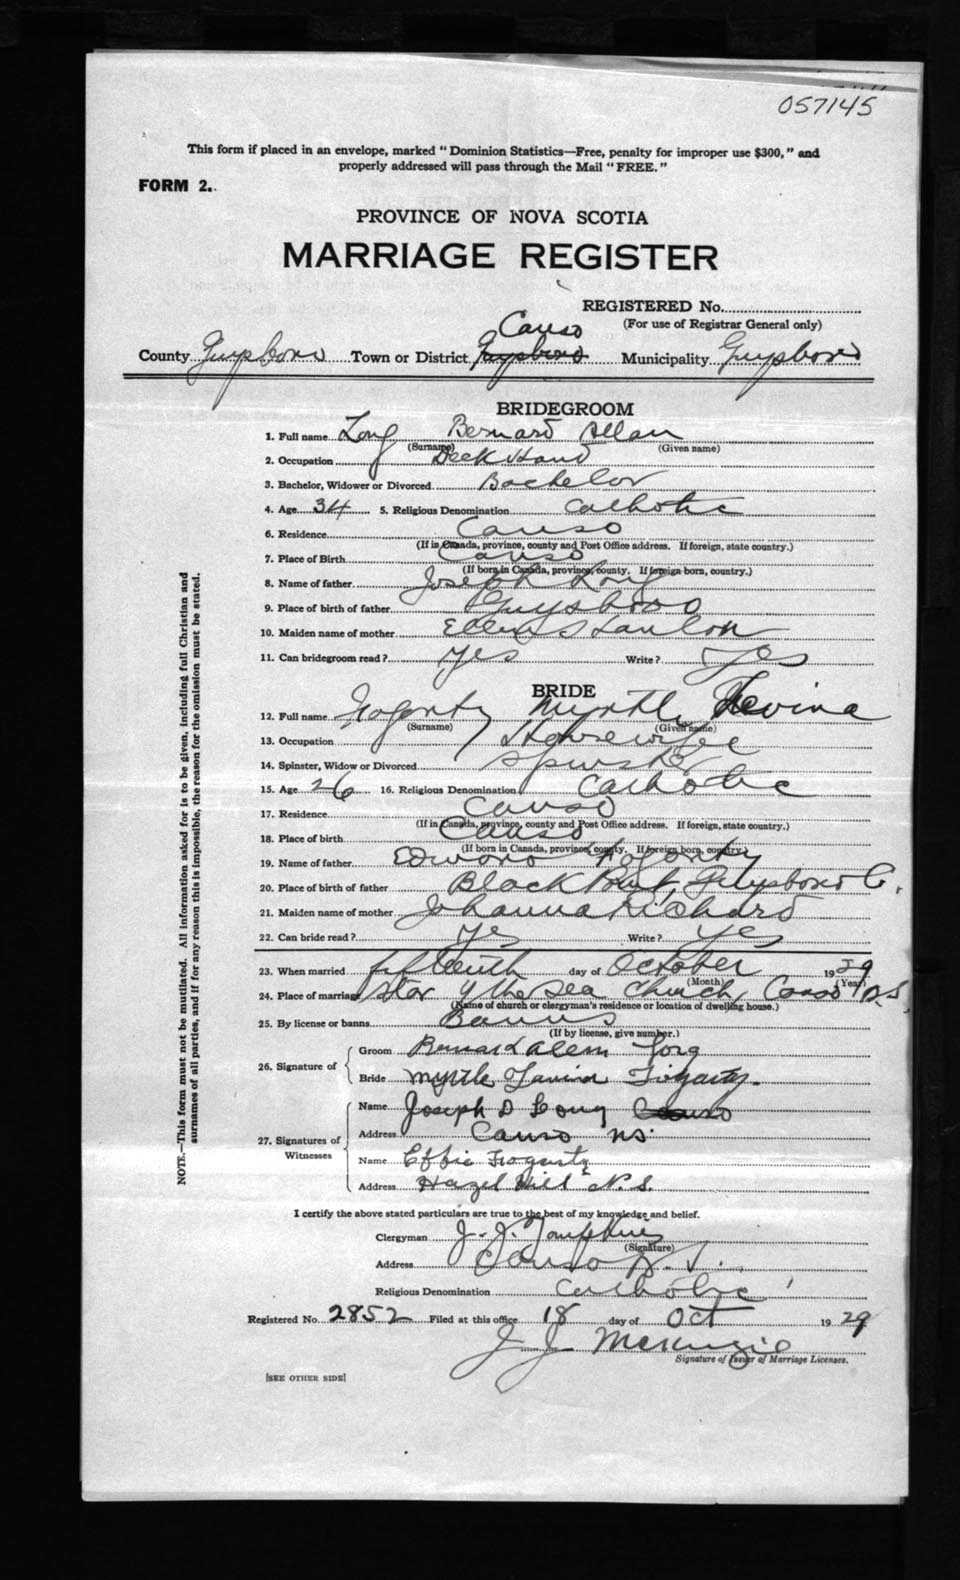 057145
This form if placed in an envelope, marked "Dominion Statistics—Free, penalty for improper use $300," and
properly addressed will pass through the Mail "FREE."
FORM 2.
PROVINCE OF NOVA SCOTIA
MARRIAGE REGISTER
REGISTERED No.
(For use of Registrar General only)
Canso
County Guysboro Town or District Guysboro Municipality Guysboro
BRIDEGROOM
1. Full name Long Bernard Allan
(Surname) (Given name)
2. Occupation Deck Hand
3. Bachelor, Widower or Divorced Bachelor
4. Age 34 5. Religious Denomination Catholic
6. Residence Canso
(If in Canada, province, county and Post Office address. If foreign, state country.)
7. Place of Birth Canso
(If born in Canada, province, county. If foreign born, country.)
8. Name of father Joseph Long
9. Place of birth of father Guysboro
10. Maiden name of mother Ellen Hanlon
11. Can bridegroom read? yes Write? yes
BRIDE
12. Full name Fogarty Myrtle Levina
(Surname) (Given name)
13. Occupation Housewife
14. Spinster, Widow or Divorced Spinster
15. Age 26 16. Religious Denomination Catholic
17. Residence Canso
(If in Canada, province, county and Post Office address. If foreign, state country.)
18. Place of birth Canso
(If born in Canada, province, county. If foreign born, country.)
19. Name of father Edward Fogarty
20. Place of birth of father Black Point, Guysboro Co.
21. Maiden name of mother Johanna Richard
22. Can bride read? yes Write? yes
23. When married fifteenth day of October 1929
(Month) (Year)
24. Place of marriage Star of the Sea Church, Canso N.S.
(Name of church or clergyman's residence or location of dwelling house.)
25. By license or banns Banns
(If by license, give number.)
26. Signature of
Groom Bernard Long
Bride Myrtle Fogarty.
27. Signatures of Witnesses
Name Joseph D Long Canso
Address Canso NS.
Name Effie Fogarty
Address Hazel Hill N.S.
I certify the above stated particulars are true to the best of my knowledge and belief.
Clergyman J. J. Tompkins
(Signature)
Address Canso N.S.
Religious Denomination Catholic
Registered No. 2852 Filed at this office 18 day of Oct 1929
J J McKenzie
Signature of Issuer of Marriage Licenses.
[SEE OTHER SIDE]
NOTE.—This form must not be mutilated. All information asked for is to be given, including full Christian and
surnames of all parties, and if for any reason this is impossible, the reason for the omission must be stated.